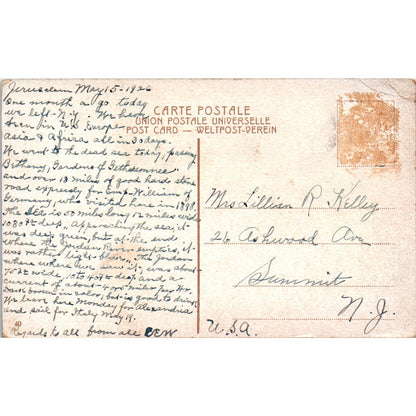 Jerusalem May 15-1926
One month a go today
we left N.Y. We have
been in U.S. Europe
Asia & Africa all in 30 days.
We went to the dead sea today, passing
Bethany, Gardens of Gethsemnea
and over 18 miles of good hard stone
road expressly for Emp. William of
Germany, who visited here in 1898.
The Sea is 50 miles long, 12 miles wide
1080 ft deep, approaching the sea, it
was deep green, but at the end
where the Jordan River empties, it
was rather light-blue, the Jordan
where we saw it, was about
75 ft wide, 10 to 40 ft deep and a
current of about 4 miles per Hr.
Dark brown in color, but is good to drink
We leave here Monday for Alexandria
and sail for Italy May 19.
Regards to all from all CEW
CARTE POSTALE
UNION POSTALE UNIVERSELLE
POST CARD — WELTPOST-VEREIN
Mrs Lillian R Kelley
26 Ashwood Ave
Summit
N.J.
U.S.A.